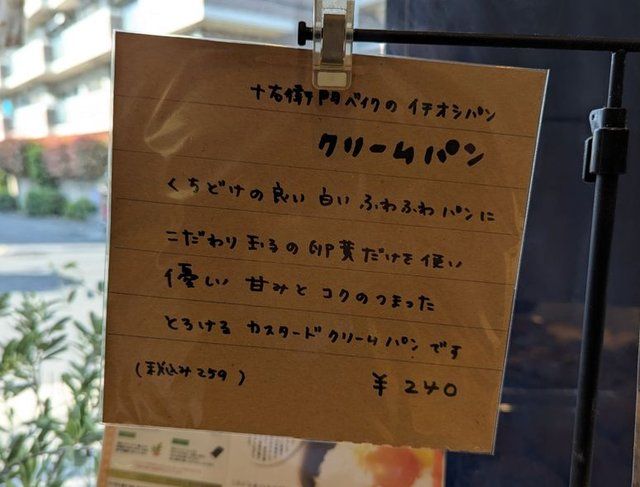 十右衛門ベイクの イチオシパン
クリームパン
くちどけの良い 白い ふわふわ パンに
こだわり玉子の 卵黄だけを 使い
優しい 甘みと コクのつまった
とろける カスタードクリームパン です
(税込み259)
¥240